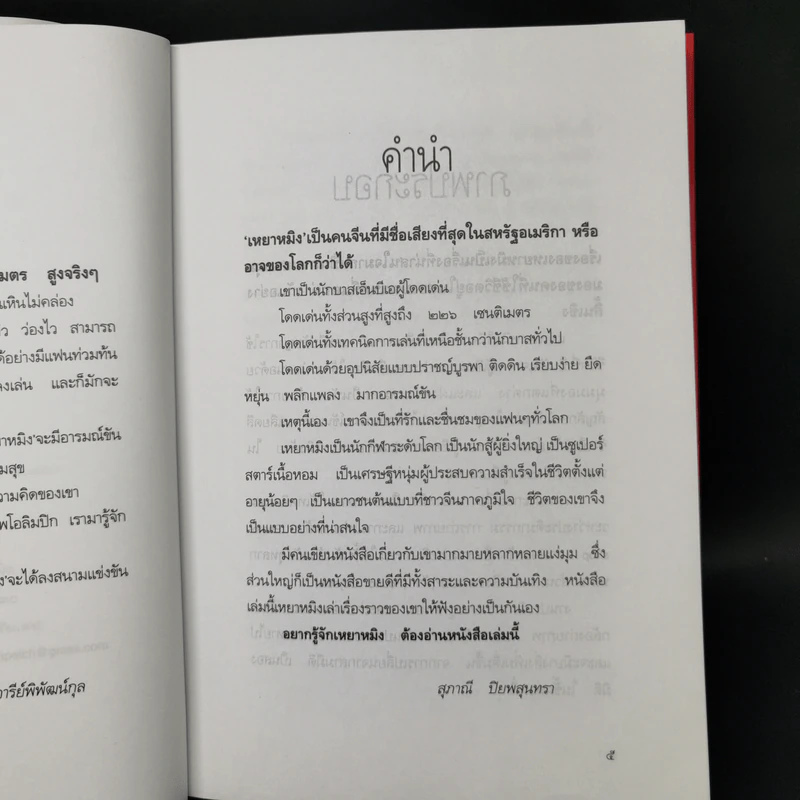 มตร สูงจริงๆ
แหินไม่คล่อง
ว่องไว สามารถ
ด้อย่างมีแฟนท่วมท้น
ลงเล่น และก็มักจะ
าหมิง'จะมีอารมณ์ขัน
มสุข
วามคิดของเขา
พโอลิมปิก เรามารู้จัก
ง'จะได้ลงสนามแข่งขัน
ารีย์พิพัฒน์กุล
คำนำ
'เหยาหมิง'เป็นคนจีนที่มีชื่อเสียงที่สุดในสหรัฐอเมริกา หรือ
อาจของโลกก็ว่าได้
เขาเป็นนักบาสเอ็นบีเอผู้โดดเด่น
โดดเด่นทั้งส่วนสูงที่สูงถึง ๒๒๖ เซนติเมตร
โดดเด่นทั้งเทคนิคการเล่นที่เหนือชั้นกว่านักบาสทั่วไป
โดดเด่นด้วยอุปนิสัยแบบปราชญ์บูรพา ติดดิน เรียบง่าย ยืด
หยุ่น พลิกแพลง มากอารมณ์ขัน
เหตุนี้เอง เขาจึงเป็นที่รักและชื่นชมของแฟนๆทั่วโลก
เหยาหมิงเป็นนักกีฬาระดับโลก เป็นนักสู้ผู้ยิ่งใหญ่ เป็นซูเปอร์
สตาร์เนื้อหอม เป็นเศรษฐีหนุ่มผู้ประสบความสำเร็จในชีวิตตั้งแต่
อายุน้อยๆ เป็นเยาวชนต้นแบบที่ชาวจีนภาคภูมิใจ ชีวิตของเขาจึง
เป็นแบบอย่างที่น่าสนใจ
มีคนเขียนหนังสือเกี่ยวกับเขามากมายหลากหลายแง่มุม ซึ่ง
ส่วนใหญ่ก็เป็นหนังสือขายดีที่มีทั้งสาระและความบันเทิง หนังสือ
เล่มนี้เหยาหมิงเล่าเรื่องราวของเขาให้ฟังอย่างเป็นกันเอง
อยากรู้จักเหยาหมิง ต้องอ่านหนังสือเล่มนี้
สุภาณี ปิยพสุนทรา
๕